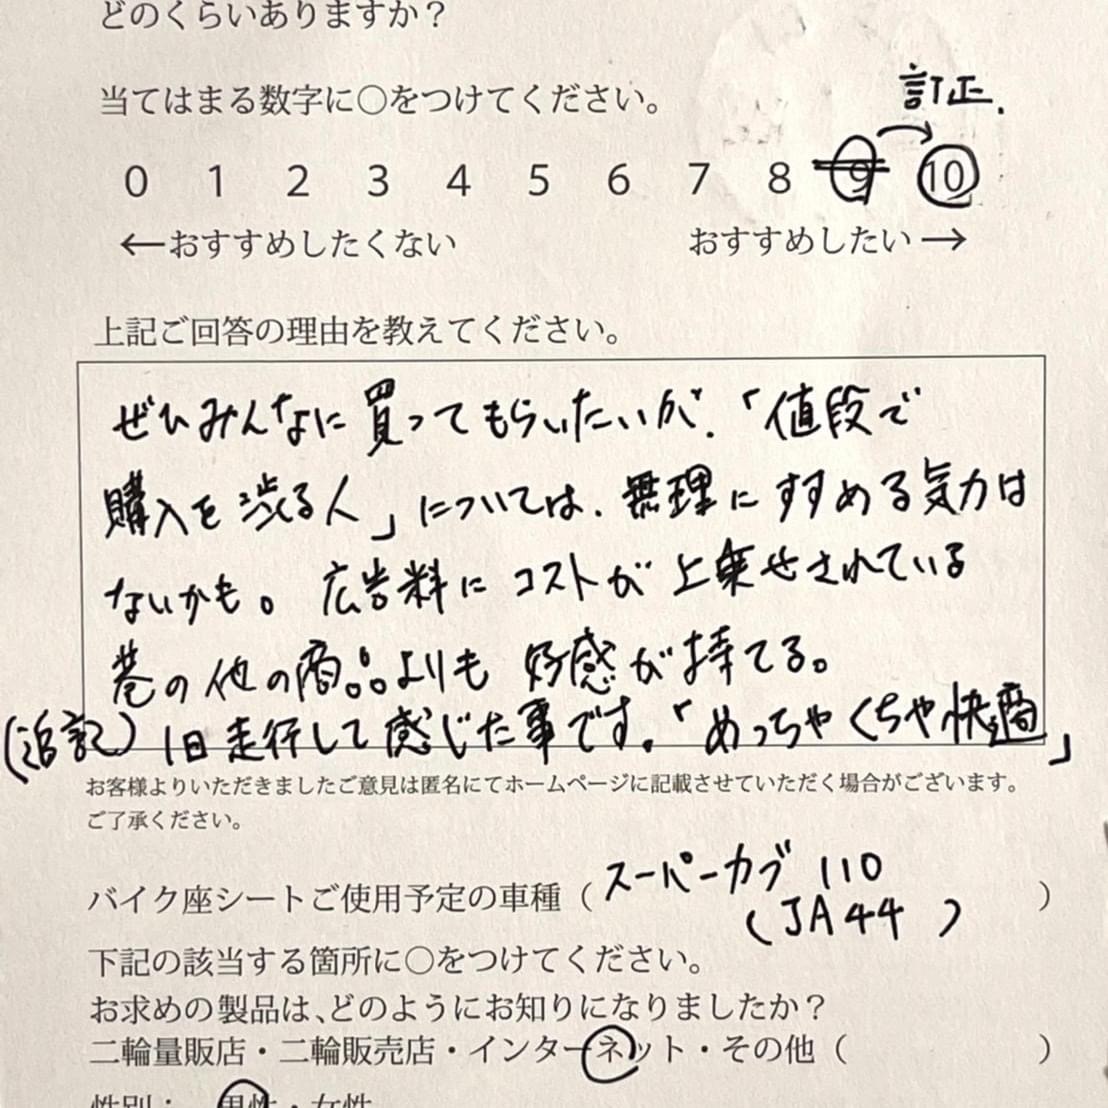 どのくらいありますか？
当てはまる数字に○をつけてください。
訂正.
0 1 2 3 4 5 6 7 8 9 10
←おすすめしたくない おすすめしたい→
上記ご回答の理由を教えてください。
ぜひみんなに買ってもらいたいが、「値段で
購入を渋る人」については、無理にすすめる気力は
ないかも。広告料にコストが上乗せされている
巷の他の商品よりも好感が持てる。
(追記) 1日走行して感じた事です。「めっちゃくちゃ快適」
お客様よりいただきましたご意見は匿名にてホームページに記載させていただく場合がございます。
ご了承ください。
バイク座シートご使用予定の車種（スーパーカブ 110
(JA44)）
下記の該当する箇所に○をつけてください。
お求めの製品は、どのようにお知りになりましたか？
二輪量販店・二輪販売店・インターネット・その他（ ）
性別： 男性・女性